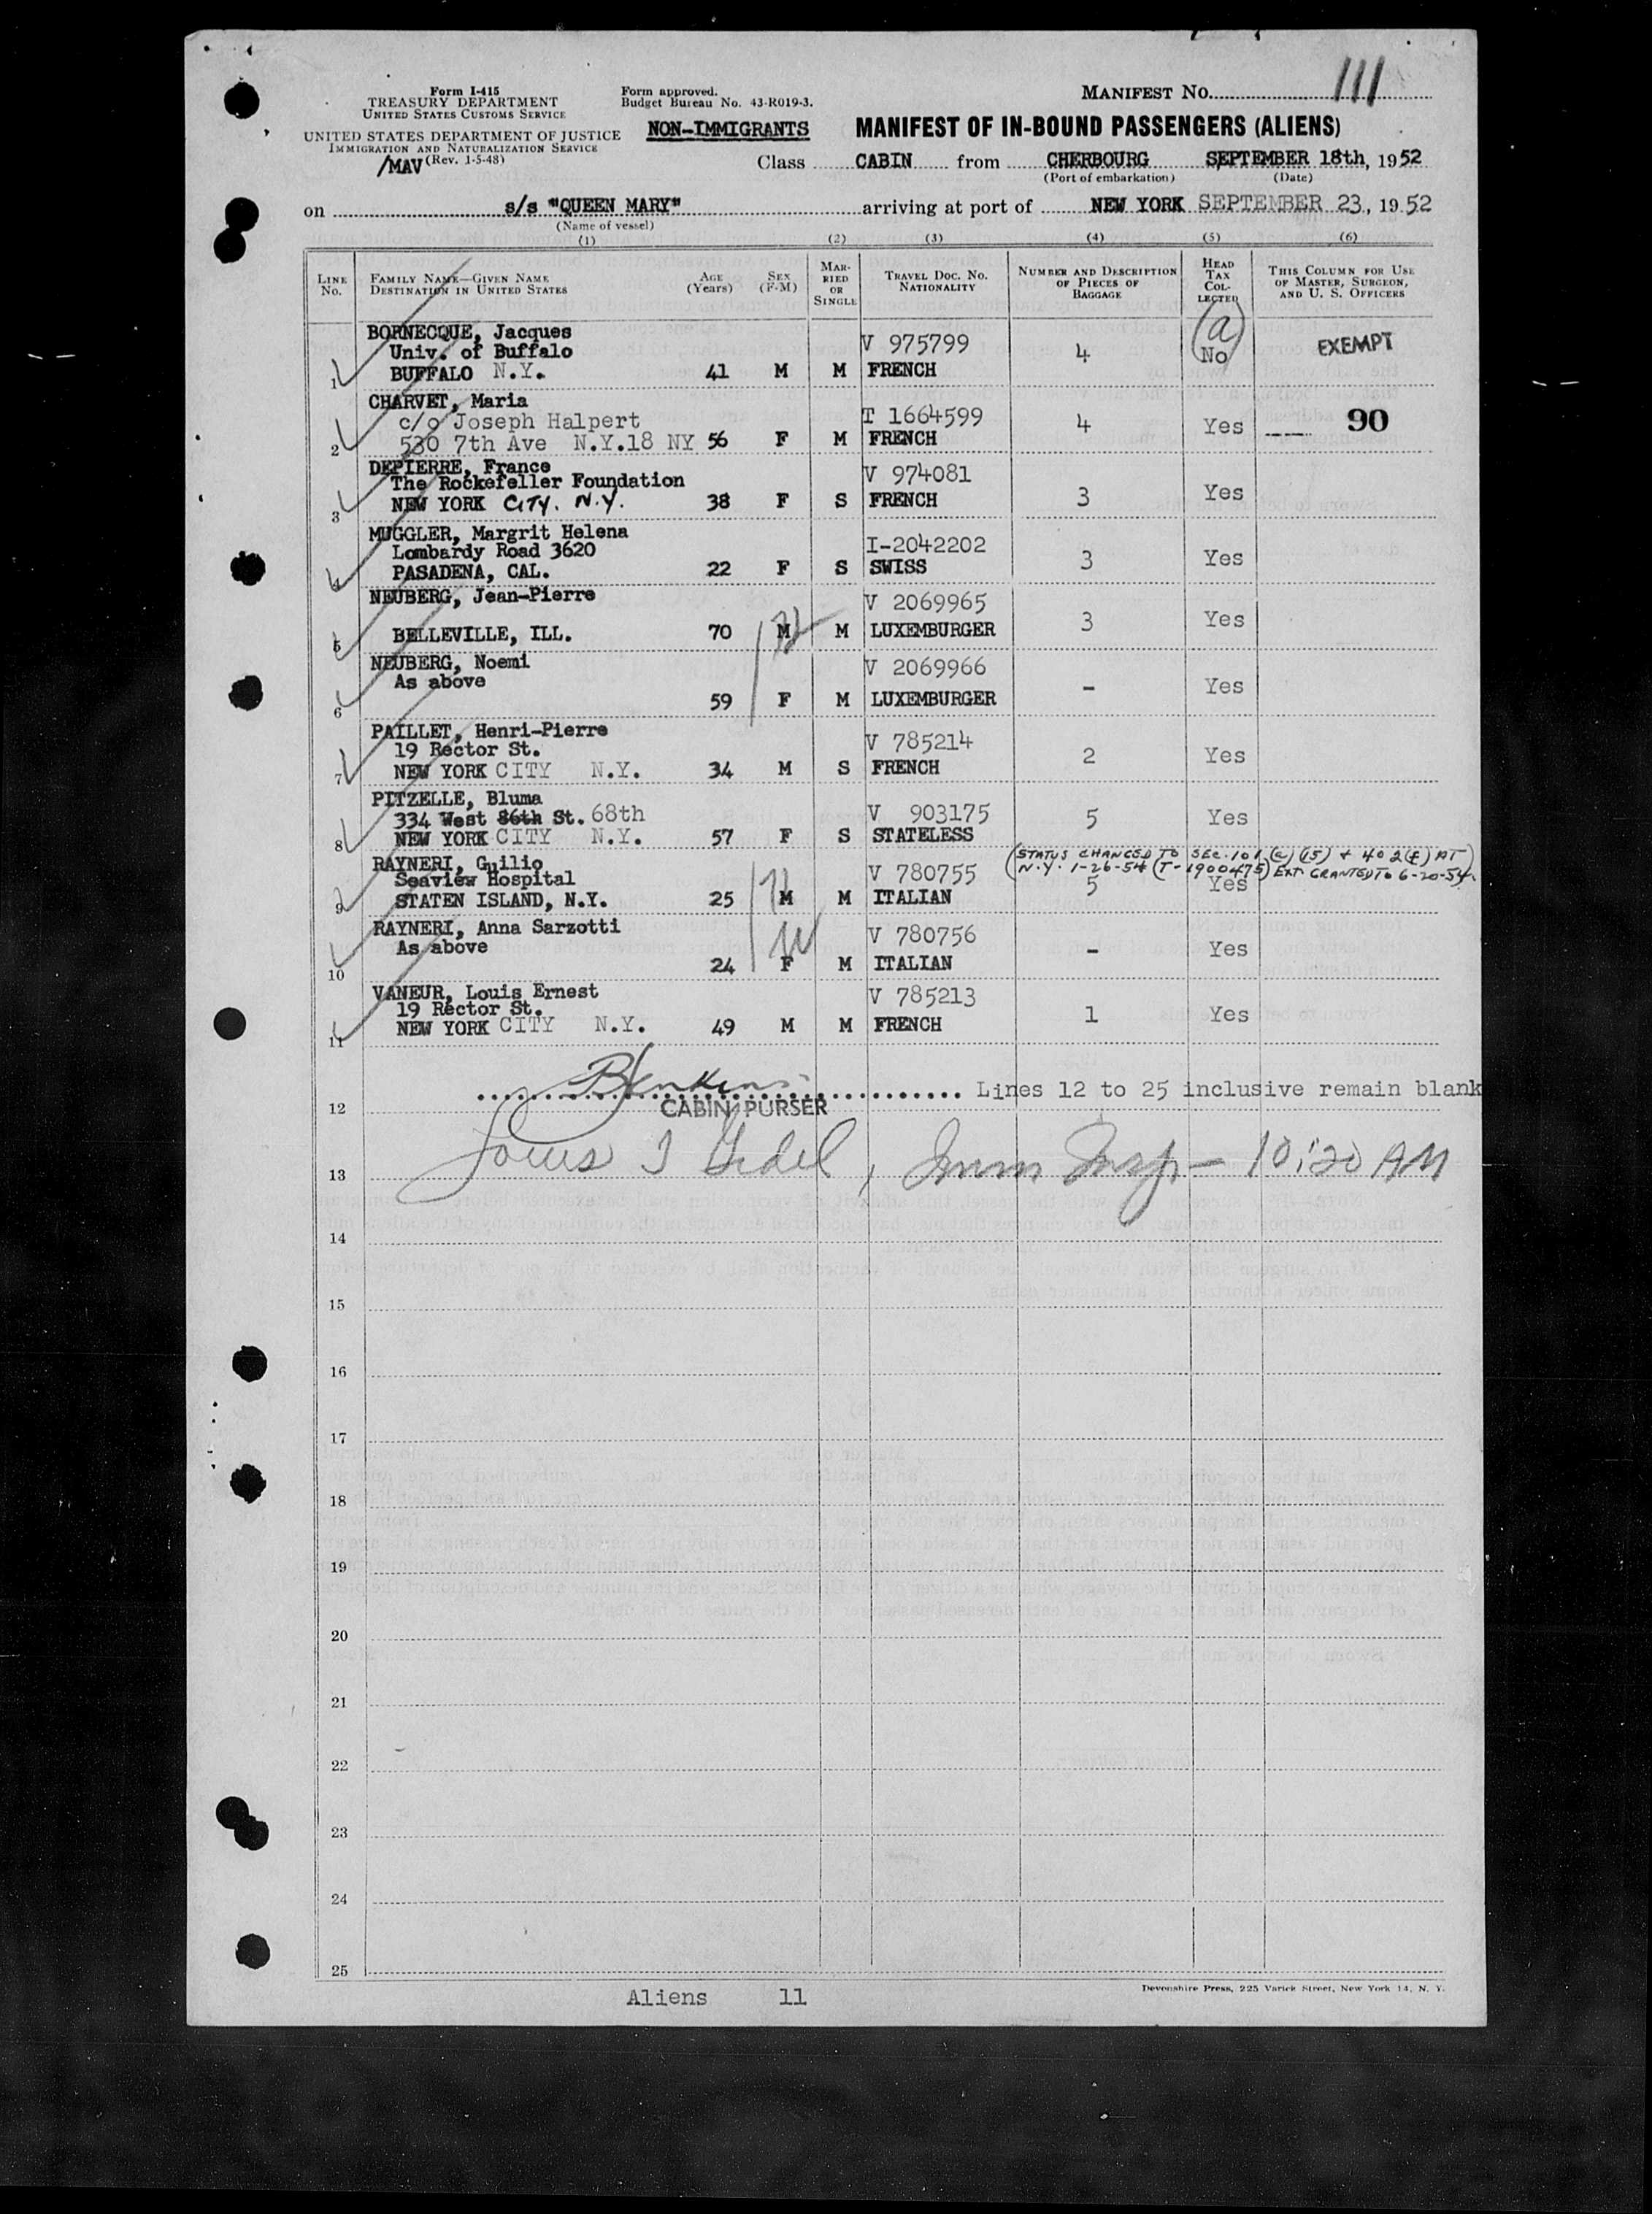 Form I-415
TREASURY DEPARTMENT
UNITED STATES CUSTOMS SERVICE
UNITED STATES DEPARTMENT OF JUSTICE
IMMIGRATION AND NATURALIZATION SERVICE
/MAV (Rev. 1-5-48)
Form approved.
Budget Bureau No. 43-R019-3.
NON-IMMIGRANTS
MANIFEST NO. 111
MANIFEST OF IN-BOUND PASSENGERS (ALIENS)
Class CABIN from CHERBOURG SEPTEMBER 18th, 1952
(Port of embarkation) (Date)
on s/s "QUEEN MARY" arriving at port of NEW YORK SEPTEMBER 23, 1952
(Name of vessel)
(1) (2) (3) (4) (5) (6)
LINE No. FAMILY NAME—GIVEN NAME DESTINATION IN UNITED STATES AGE (Years) SEX (F-M) MARRIED OR SINGLE TRAVEL DOC. NO. NATIONALITY NUMBER AND DESCRIPTION OF PIECES OF BAGGAGE HEAD TAX COLLECTED THIS COLUMN FOR USE OF MASTER, SURGEON, AND U. S. OFFICERS
BORNECQUE, Jacques V 975799 (a)
Univ. of Buffalo 4 No EXEMPT
1 BUFFALO N.Y. 41 M M FRENCH
CHARVET, Maria T 1664599
c/o Joseph Halpert 4 Yes 90
2 530 7th Ave N.Y.18 NY 56 F M FRENCH
DEPIERRE, France V 974081
The Rockefeller Foundation 3 Yes
3 NEW YORK CITY. N.Y. 38 F S FRENCH
MUGGLER, Margrit Helena I-2042202
Lombardy Road 3620 3 Yes
4 PASADENA, CAL. 22 F S SWISS
NEUBERG, Jean-Pierre V 2069965
5 BELLEVILLE, ILL. 70 M M LUXEMBURGER 3 Yes
NEUBERG, Noemi V 2069966
As above - Yes
6 59 F M LUXEMBURGER
PAILLET, Henri-Pierre V 785214
19 Rector St. 2 Yes
7 NEW YORK CITY N.Y. 34 M S FRENCH
PITZELLE, Bluma V 903175
334 West 86th St. 68th 5 Yes
8 NEW YORK CITY N.Y. 57 F S STATELESS
(STATUS CHANGED TO SEC. 101 (a) (15) + 402(F) AT
N.Y. 1-26-54 (T-1900475) EXT. GRANTED TO 6-20-54.
RAYNERI, Guilio V 780755
Seaview Hospital 5 Yes
9 STATEN ISLAND, N.Y. 25 M M ITALIAN
RAYNERI, Anna Sarzotti V 780756
As above - Yes
10 24 F M ITALIAN
VANEUR, Louis Ernest V 785213
19 Rector St. 1 Yes
11 NEW YORK CITY N.Y. 49 M M FRENCH
Lines 12 to 25 inclusive remain blank
12 CABIN PURSER
13 Louis I , Imm Insp - 10:20 AM
14
15
16
17
18
19
20
21
22
23
24
25
Aliens 11
Devonshire Press, 225 Varick Street, New York 14, N. Y.